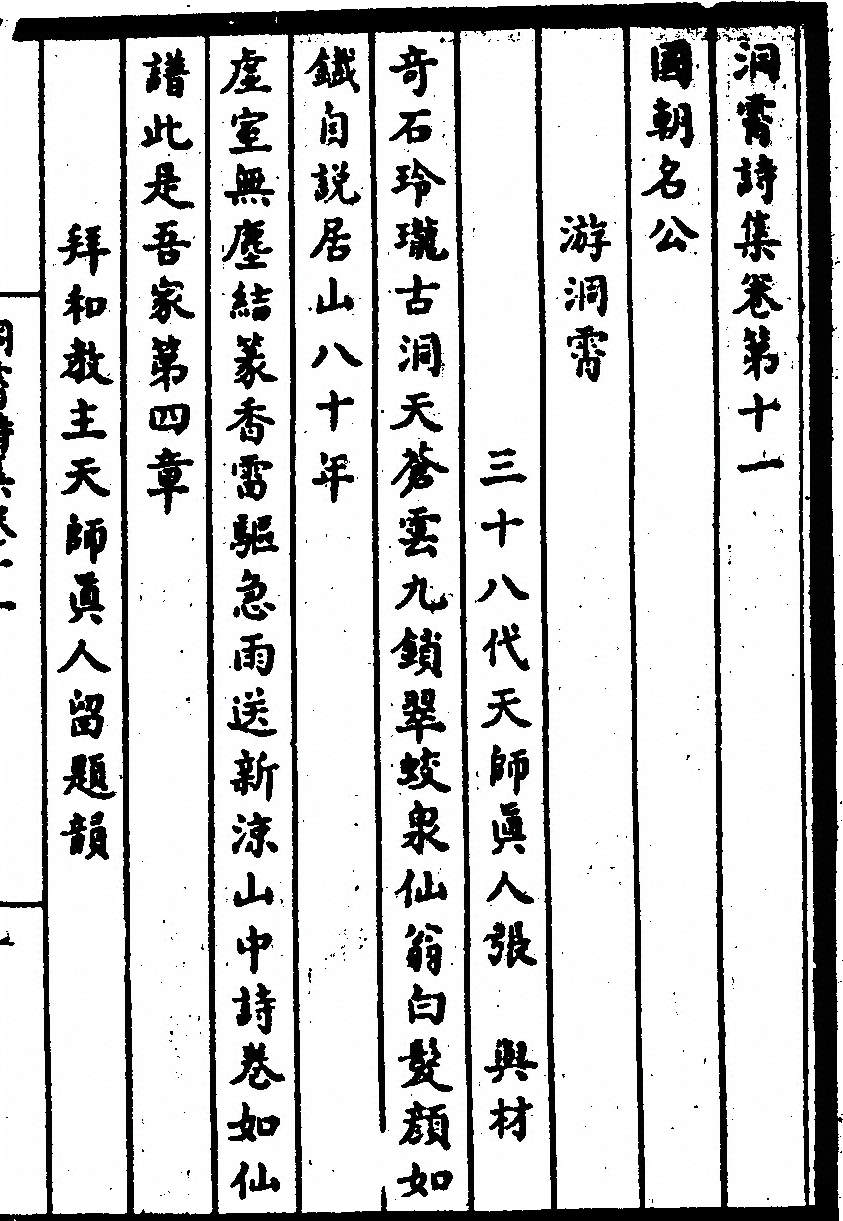 洞霄詩集卷第十一
國朝名公
游洞霄
三十八代天師眞人張 與材
奇石玲瓏古洞天蒼雲九鎖翠蛟泉仙翁白髮顔如
鐵自説居山八十年
虛室無塵結篆香雷驅急雨送新涼山中詩卷如仙
譜此是吾家第四章
拜和教主天師眞人留題韻
洞霄詩集卷十一